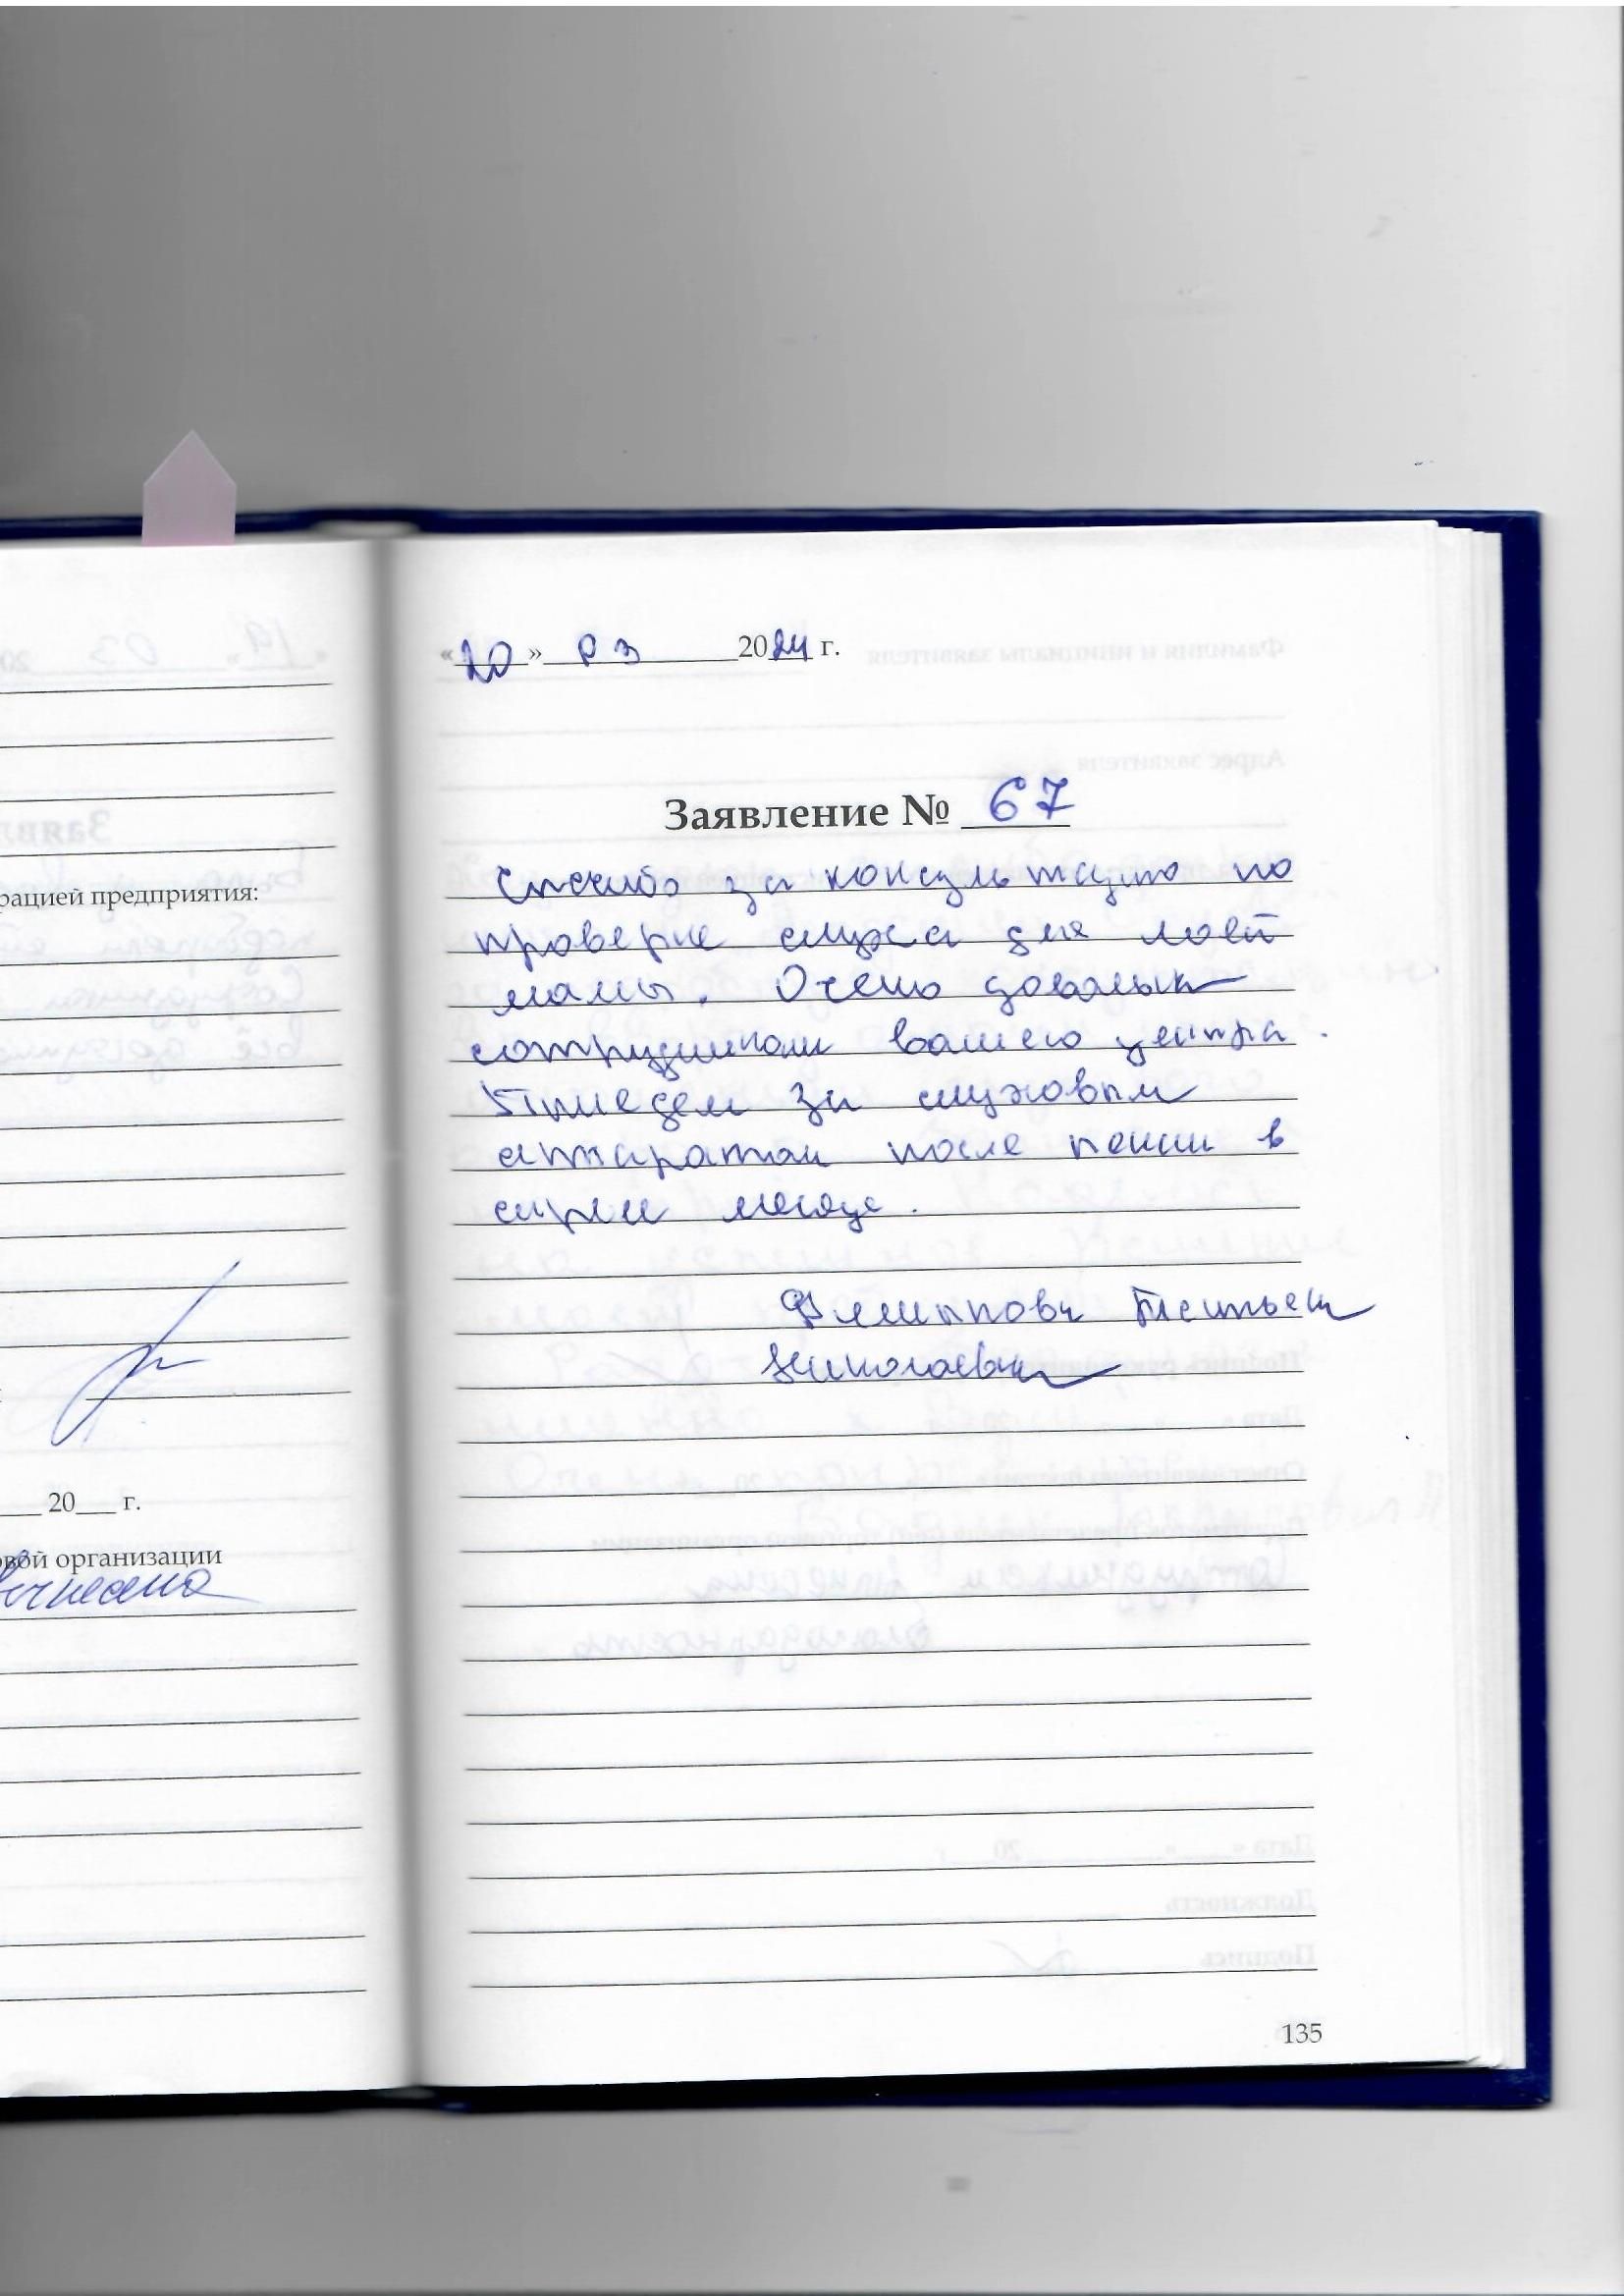 «20» 03 2024 г.
Заявление № 67
Спасибо за консультацию по
проверке слуха для моей
мамы. Очень довольны
сотрудниками вашего центра.
Приедем за слуховым
аппаратом после пенсии в
апреле месяце.
Татьяна
Николаевна
135
рацией предприятия:
20 г.
вой организации